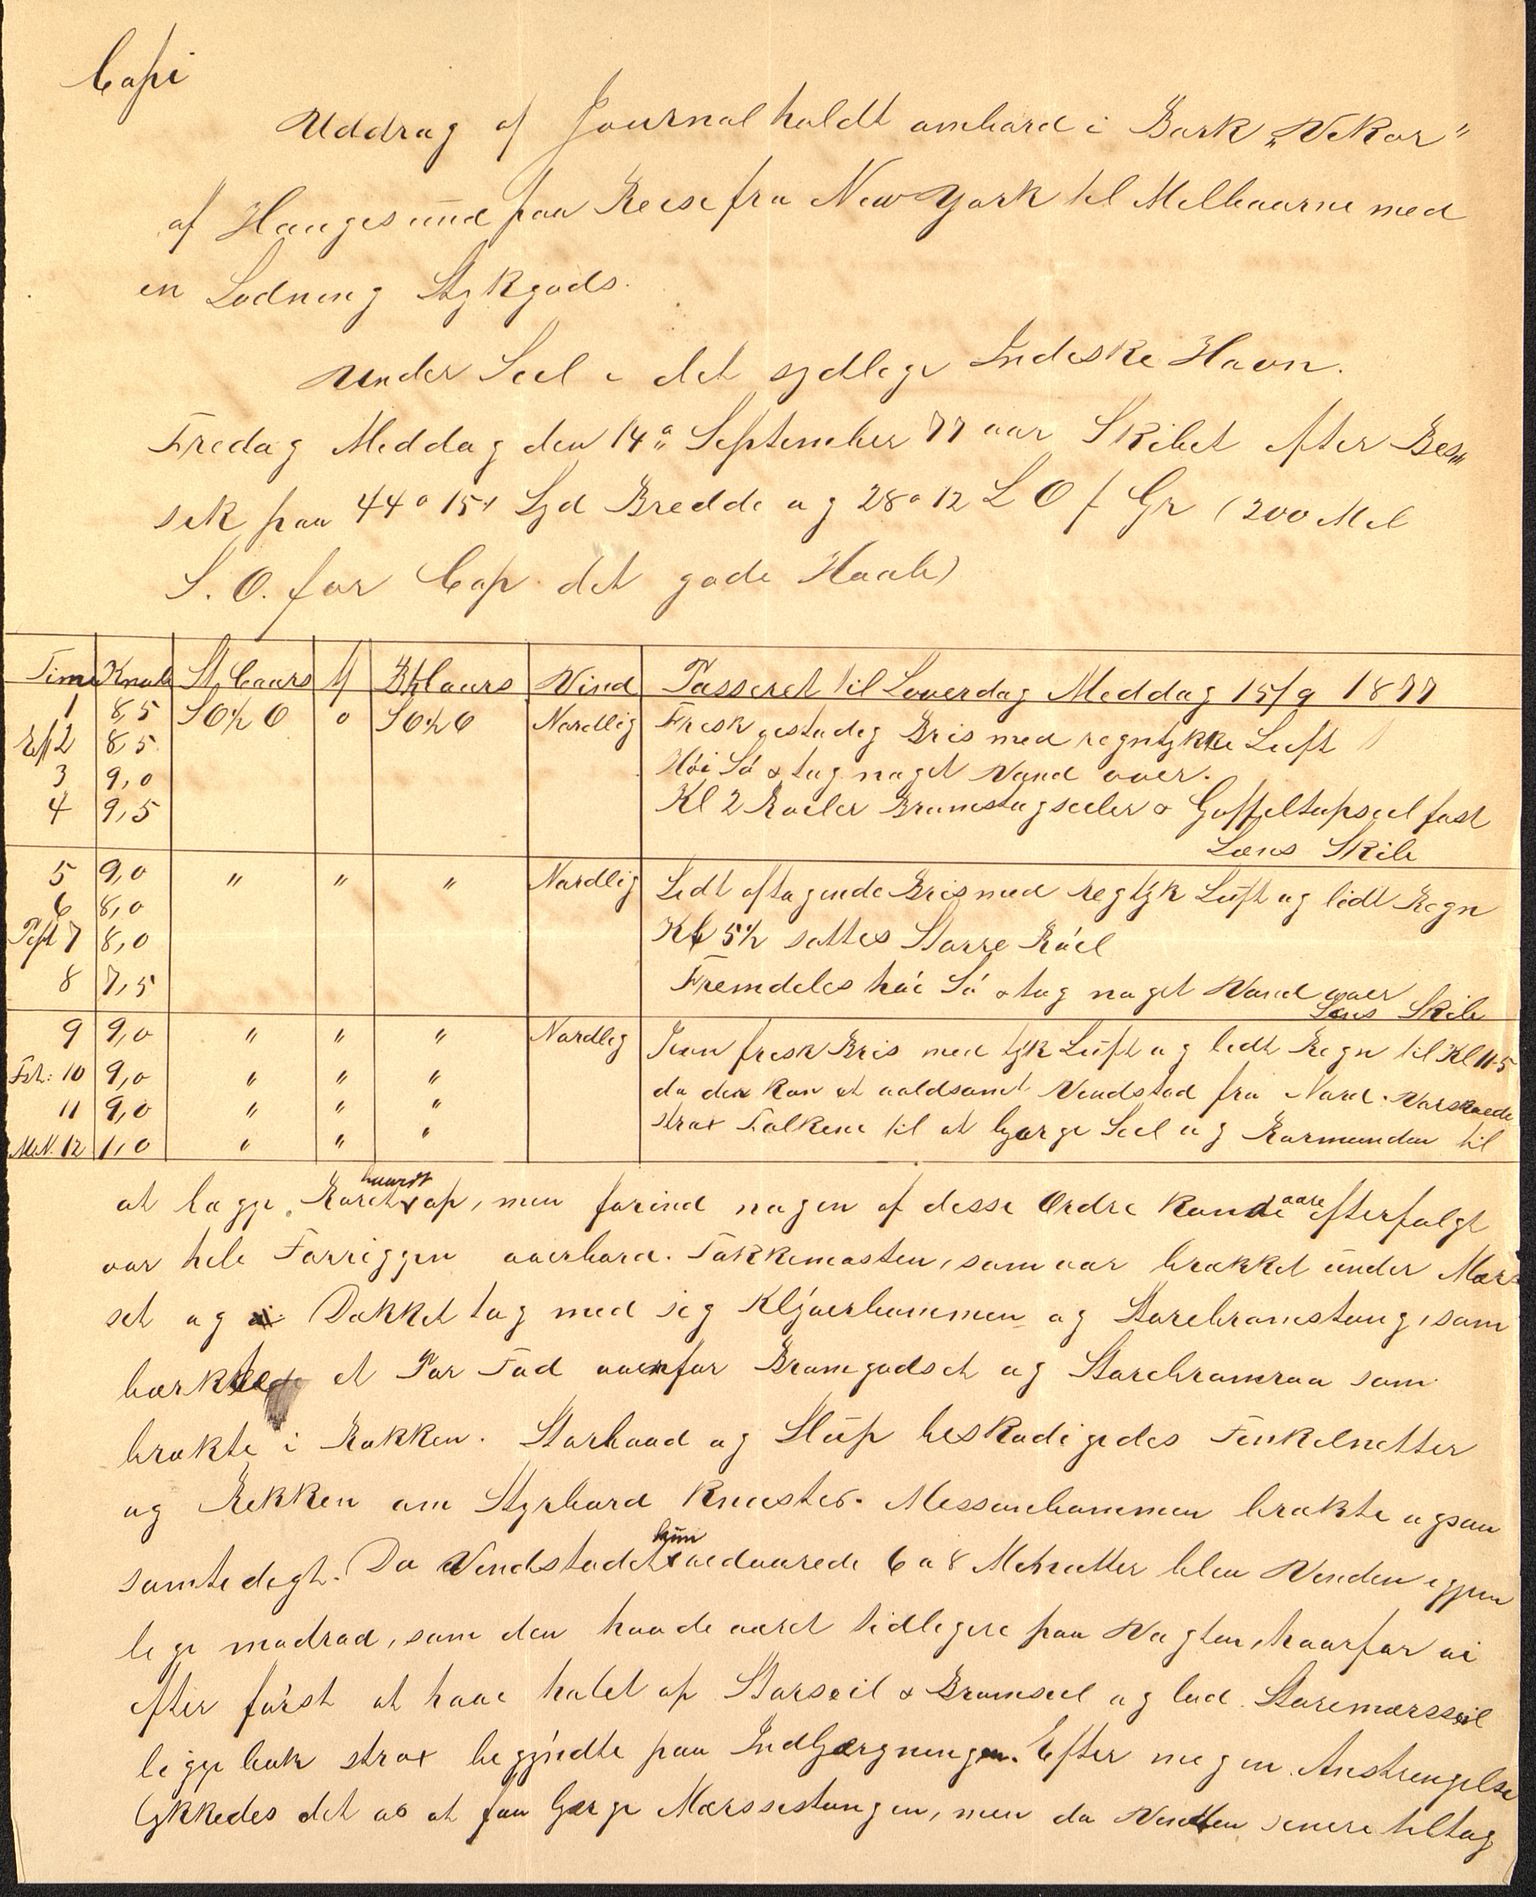 Copi
Uddrag af Journal holdt ombord i Bark „Vekar"
af Haugesund paa Reise fra New York til Melbourne med
en Ladning Stykgods.
Under Seil i det sydlige Indiske Havn.
Fredag Middag den 14de September 77 var Skibet efter Bes„
tik paa 44° 15' Syd Bredde og 28° 12 L O f Gr (200 Mil
S. O. for Cap det gode Haab)
Time Knob St Cours Bh Cours Vind Passeret til Løverdag Middag 15/9 1877
1 8,5 SO½O o SO½O Nordlig Frisk gestadig Bris med regntykke Luft
Ef 2 8,5 Høi Sø & tog noget Vand over.
3 9,0 Kl 2 Røiler Bramstagseiler & Gaffeltopseil fast
4 9,5 Læns Skib
5 9,0 " " " Nordlig Lidt aftagende Bris med regtyk Luft og lidt Regn
6 8,0 Kl 5½ sattes Store Røil
Pift 7 8,0 Fremdeles høi Sø & tog noget Vand over
8 7,5 Læns Skib
9 9,0 " " " Nordlig Jevn frisk Bris med tyk Luft og lidt Regn til Kl 11-5
Fst: 10 9,0 " " " da der kom et voldsomt Vindstød fra Nord. Varskoede
11 9,0 " " " strax Folkene til at bjerge Seil og Rormanden til
M.N. 12 1,0 " " "
at lægge Roret haardt op, men forind nogen af disse Ordre kunde være efterfulgt
var hele Forriggen overbord. Fokkemasten, som var brækket under Mers
set og i Dækket tog med sig Klyverbommen og Storebramstang, som
brækkede et Par Fod ovenfor Bramgodset og Storebramraa som
brækte i Rakken. Storbaad og Slup beskadigedes Finkelnetter
og Rekken om Styrbord knustes. Messanbommen brækte ogsaa
samtidigt. Da Vindstødet kun vedvarede 6 a 8 Minutter blev Vinden igjen
lige modrad, som den havde været tidligere paa Vagten, hvorfor vi
efter først at have halet op Storseil & Bramseil og lod Storemersseil
ligge bak strax begyndte paa Indbjergningen. Efter megen Anstrengelse
lykkedes det os at faa bjerge Mersestangen, men da Vinden senere tiltog